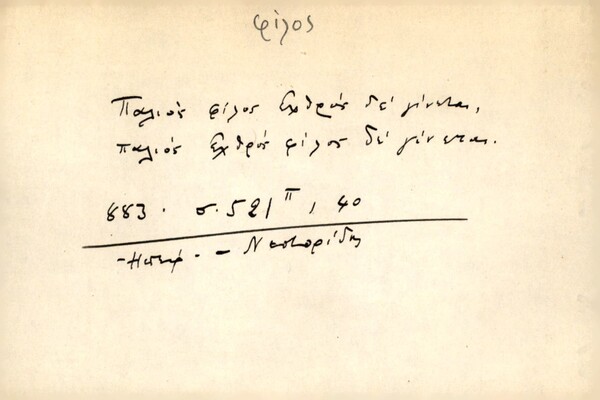 φίλος
Παλιός φίλος εχθρός δέ γίνεται,
παλιός εχθρός φίλος δέ γίνεται.
883. σ. 521 II, 40
Ηπειρ. - Νεστορίδης